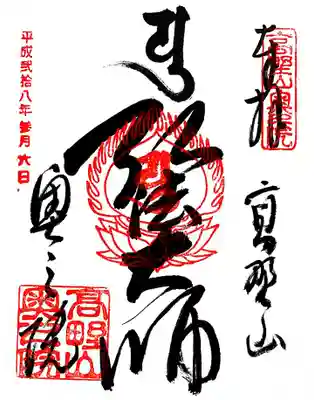 奉拝
高野山
弘法大師
奥之院
平成弐拾八年参月六日
高野山
奥之院